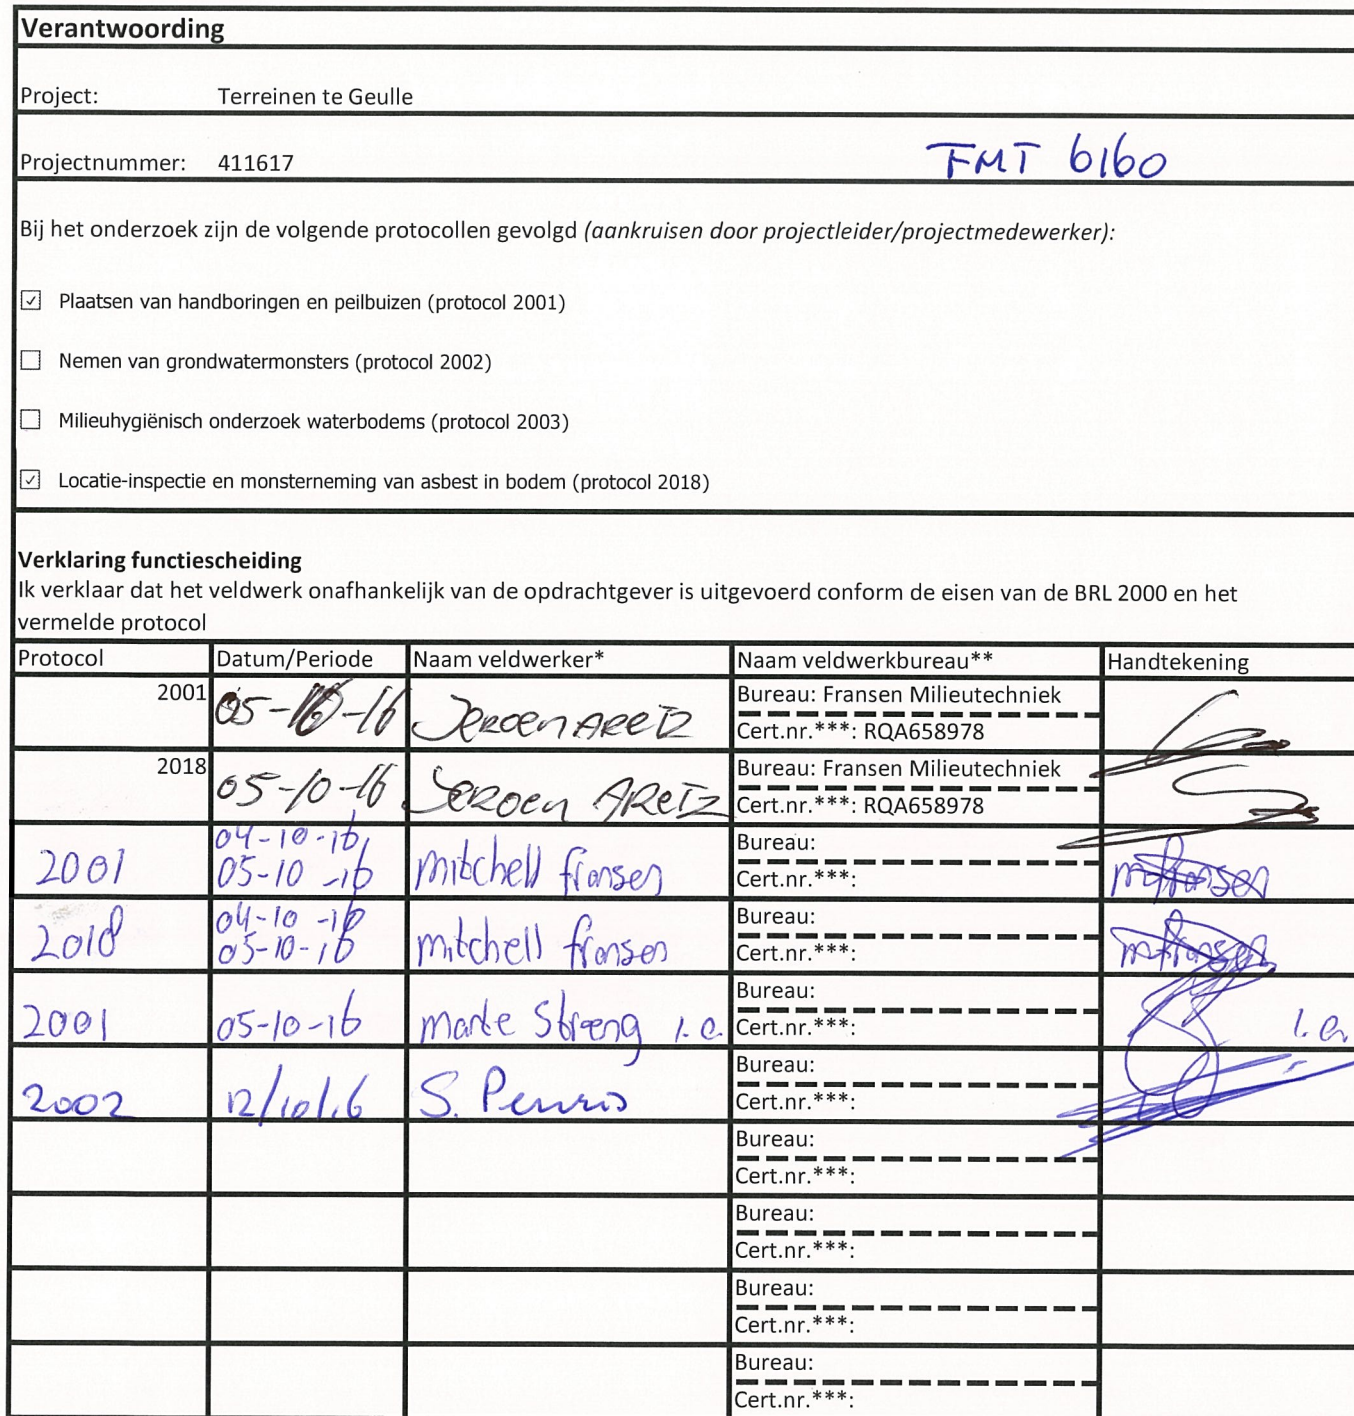 Verantwoording
Project: Terreinen te Geulle
Projectnummer: 411617 FMT 6160
Bij het onderzoek zijn de volgende protocollen gevolgd (aankruisen door projectleider/projectmedewerker):
☑ Plaatsen van handboringen en peilbuizen (protocol 2001)
☐ Nemen van grondwatermonsters (protocol 2002)
☐ Milieuhygiënisch onderzoek waterbodems (protocol 2003)
☑ Locatie-inspectie en monsterneming van asbest in bodem (protocol 2018)
Verklaring functiescheiding
Ik verklaar dat het veldwerk onafhankelijk van de opdrachtgever is uitgevoerd conform de eisen van de BRL 2000 en het
vermelde protocol
Protocol Datum/Periode Naam veldwerker* Naam veldwerkbureau** Handtekening
2001 05-10-16 Jeroen Aretz Bureau: Fransen Milieutechniek
Cert.nr.***: RQA658978
2018 05-10-16 Jeroen Aretz Bureau: Fransen Milieutechniek
Cert.nr.***: RQA658978
04-10-16 Bureau:
2001 05-10-16 mitchell fransen Cert.nr.***: mfransen
04-10-16 Bureau:
2018 05-10-16 mitchell fransen Cert.nr.***: mfransen
Bureau:
2001 05-10-16 i.o. Cert.nr.***: i.o.
Bureau:
2002 12/10/16 S. Cert.nr.***:
Bureau:
Cert.nr.***:
Bureau:
Cert.nr.***:
Bureau:
Cert.nr.***:
Bureau:
Cert.nr.***: